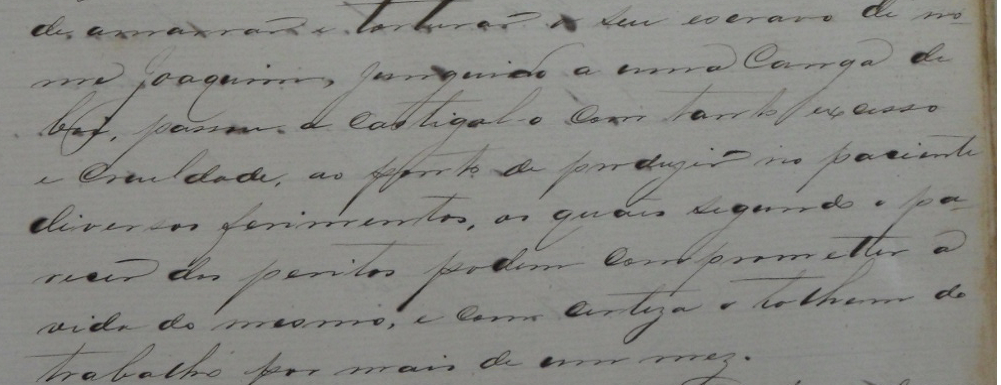 de amarrar e torturar o seu escravo de no-
me Joaquim, jungido a uma Canga de
boi, passou a castigal-o com tanto excesso
e crueldade, ao ponto de produzir no paciente
diversos ferimentos, os quaes segundo o pa-
recer dos peritos podem comprometter a
vida do mesmo, e com certeza o tolhem do
trabalho por mais de um mez.